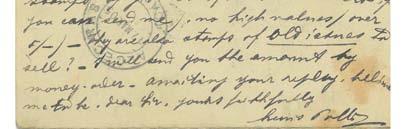 you can send me); no high values/over
5/-)- by are also stamps of Old issues to
sell? - I will send you the amount by
money-order - awaiting your reply, believe
me to be, dear Sir, yours faithfully